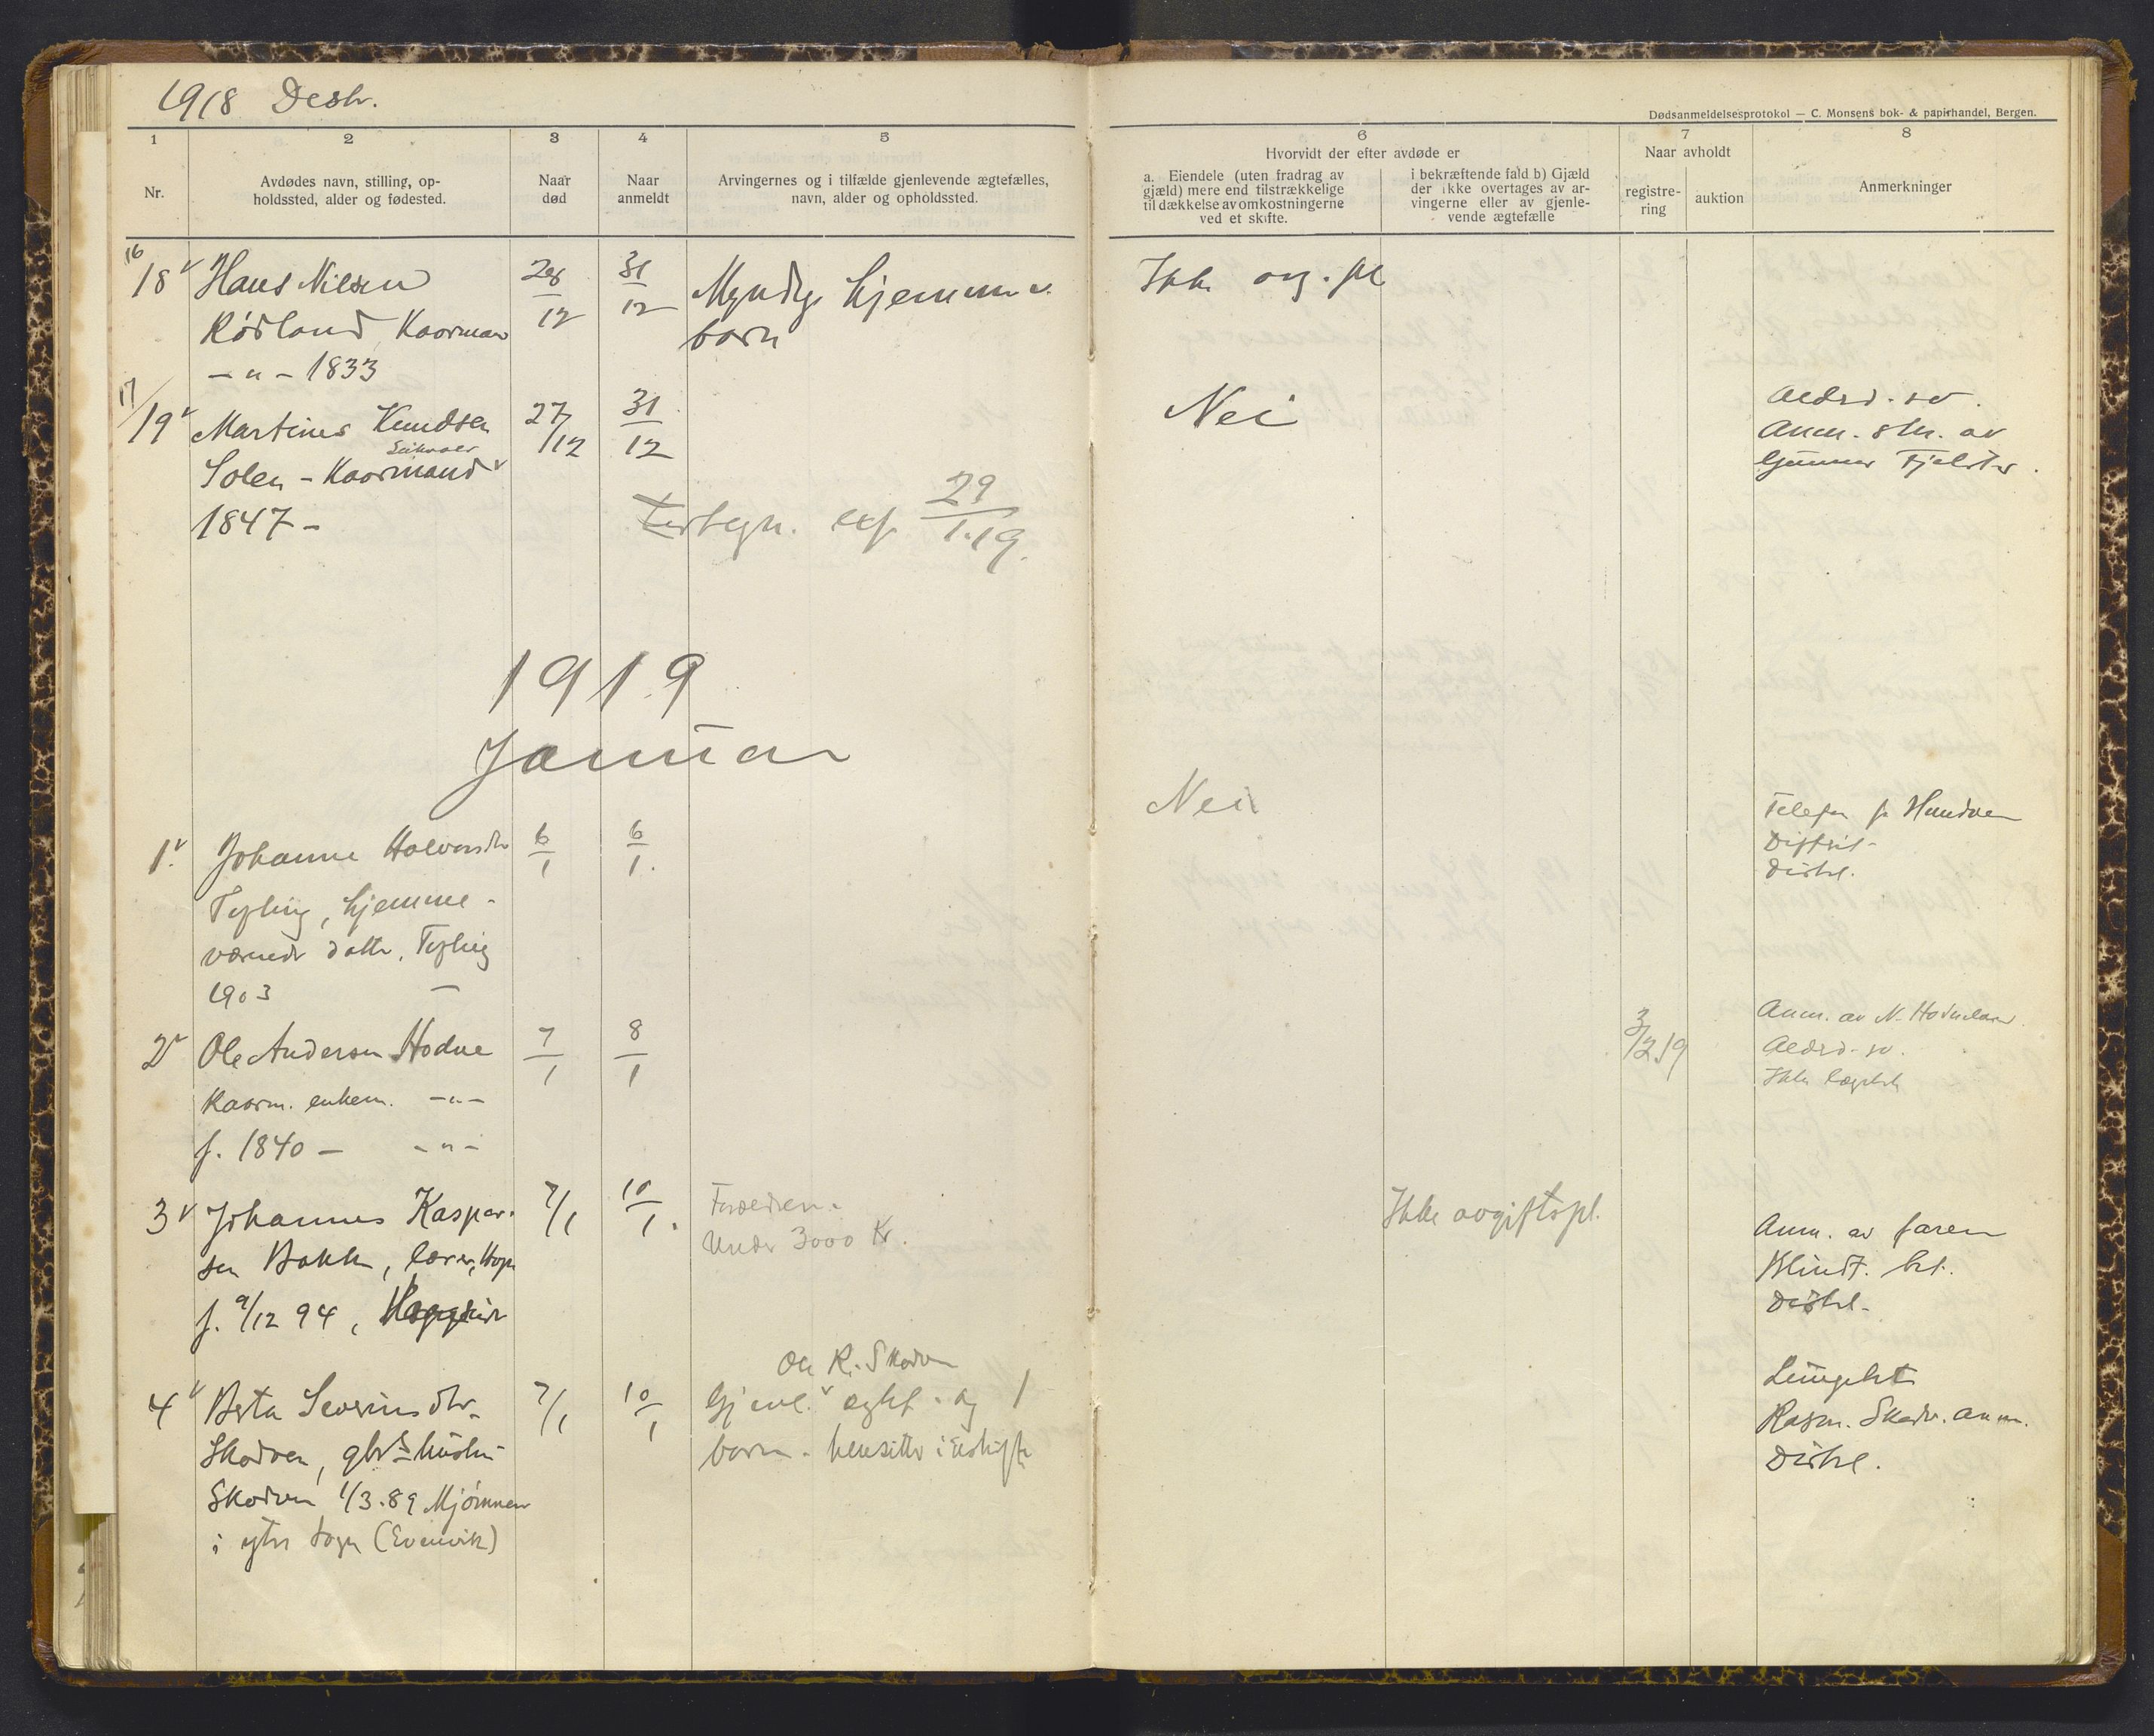 1918 Desbr.
Dødsanmeldelsesprotokol — C. Monsens bok- & papirhandel, Bergen.
1
2
3
4
5
6
7
8
Nr.
Avdødes navn, stilling, op-
holdssted, alder og fødested.
Naar
død
Naar
anmeldt
Arvingernes og i tilfælde gjenlevende ægtefælles,
navn, alder og opholdssted.
Hvorvidt der efter avdøde er
a. Eiendele (uten fradrag av
gjæld) mere end tilstrækkelige
til dækkelse av omkostningerne
ved et skifte.
i bekræftende fald b) Gjæld
der ikke overtages av ar-
vingerne eller av gjenle-
vende ægtefælle
Naar avholdt
registre-
ring
auktion
Anmerkninger
16
18 Hans Nilsen
Rødland, Kaarmand
— „ — 1833
28/12
31/12
Myndige hjemmev.
børn
Ikke avg. pl
17
19 Martines Knudsen
Solen - Kaarmand
1847 -
27/12
31/12
Nei
Alderd. sv.
Anm. skr. av
Gunnar
exp. 29/1.19.
1919
Januar
1. Johanne Halvorsdtr
Tepling, hjemme-
værende datter, Tepling
1903
6/1
6/1.
Nei
Telefon fr Hundven
Distrikt-
2 Ole Andersen Hodne
Kaarm. enkem. — „ —
f. 1840 — — „ —
7/1
8/1
3/2 19
Anm. av N.
Alderd. sv.
Ikke
3 Johannes Kaspar-
sen Bakke, lærer, Hope
f. 9/12 94,
7/1
10/1.
Forældren.
Under 3000 Kr.
Ikke avgiftspl.
Anm. av faren
Blindt. bet.
4 Berta Severinsdtr.
Skodven, gbr. hustru
Skodven 1/3.89 Mjømnen
i ytre Sogn (Evenvik)
7/1
10/1
Ole R. Skodven
Gjenl. egtef. og 1
barn - hensitter i uskifte
Lungebet
Rasm. Skodv. anm.